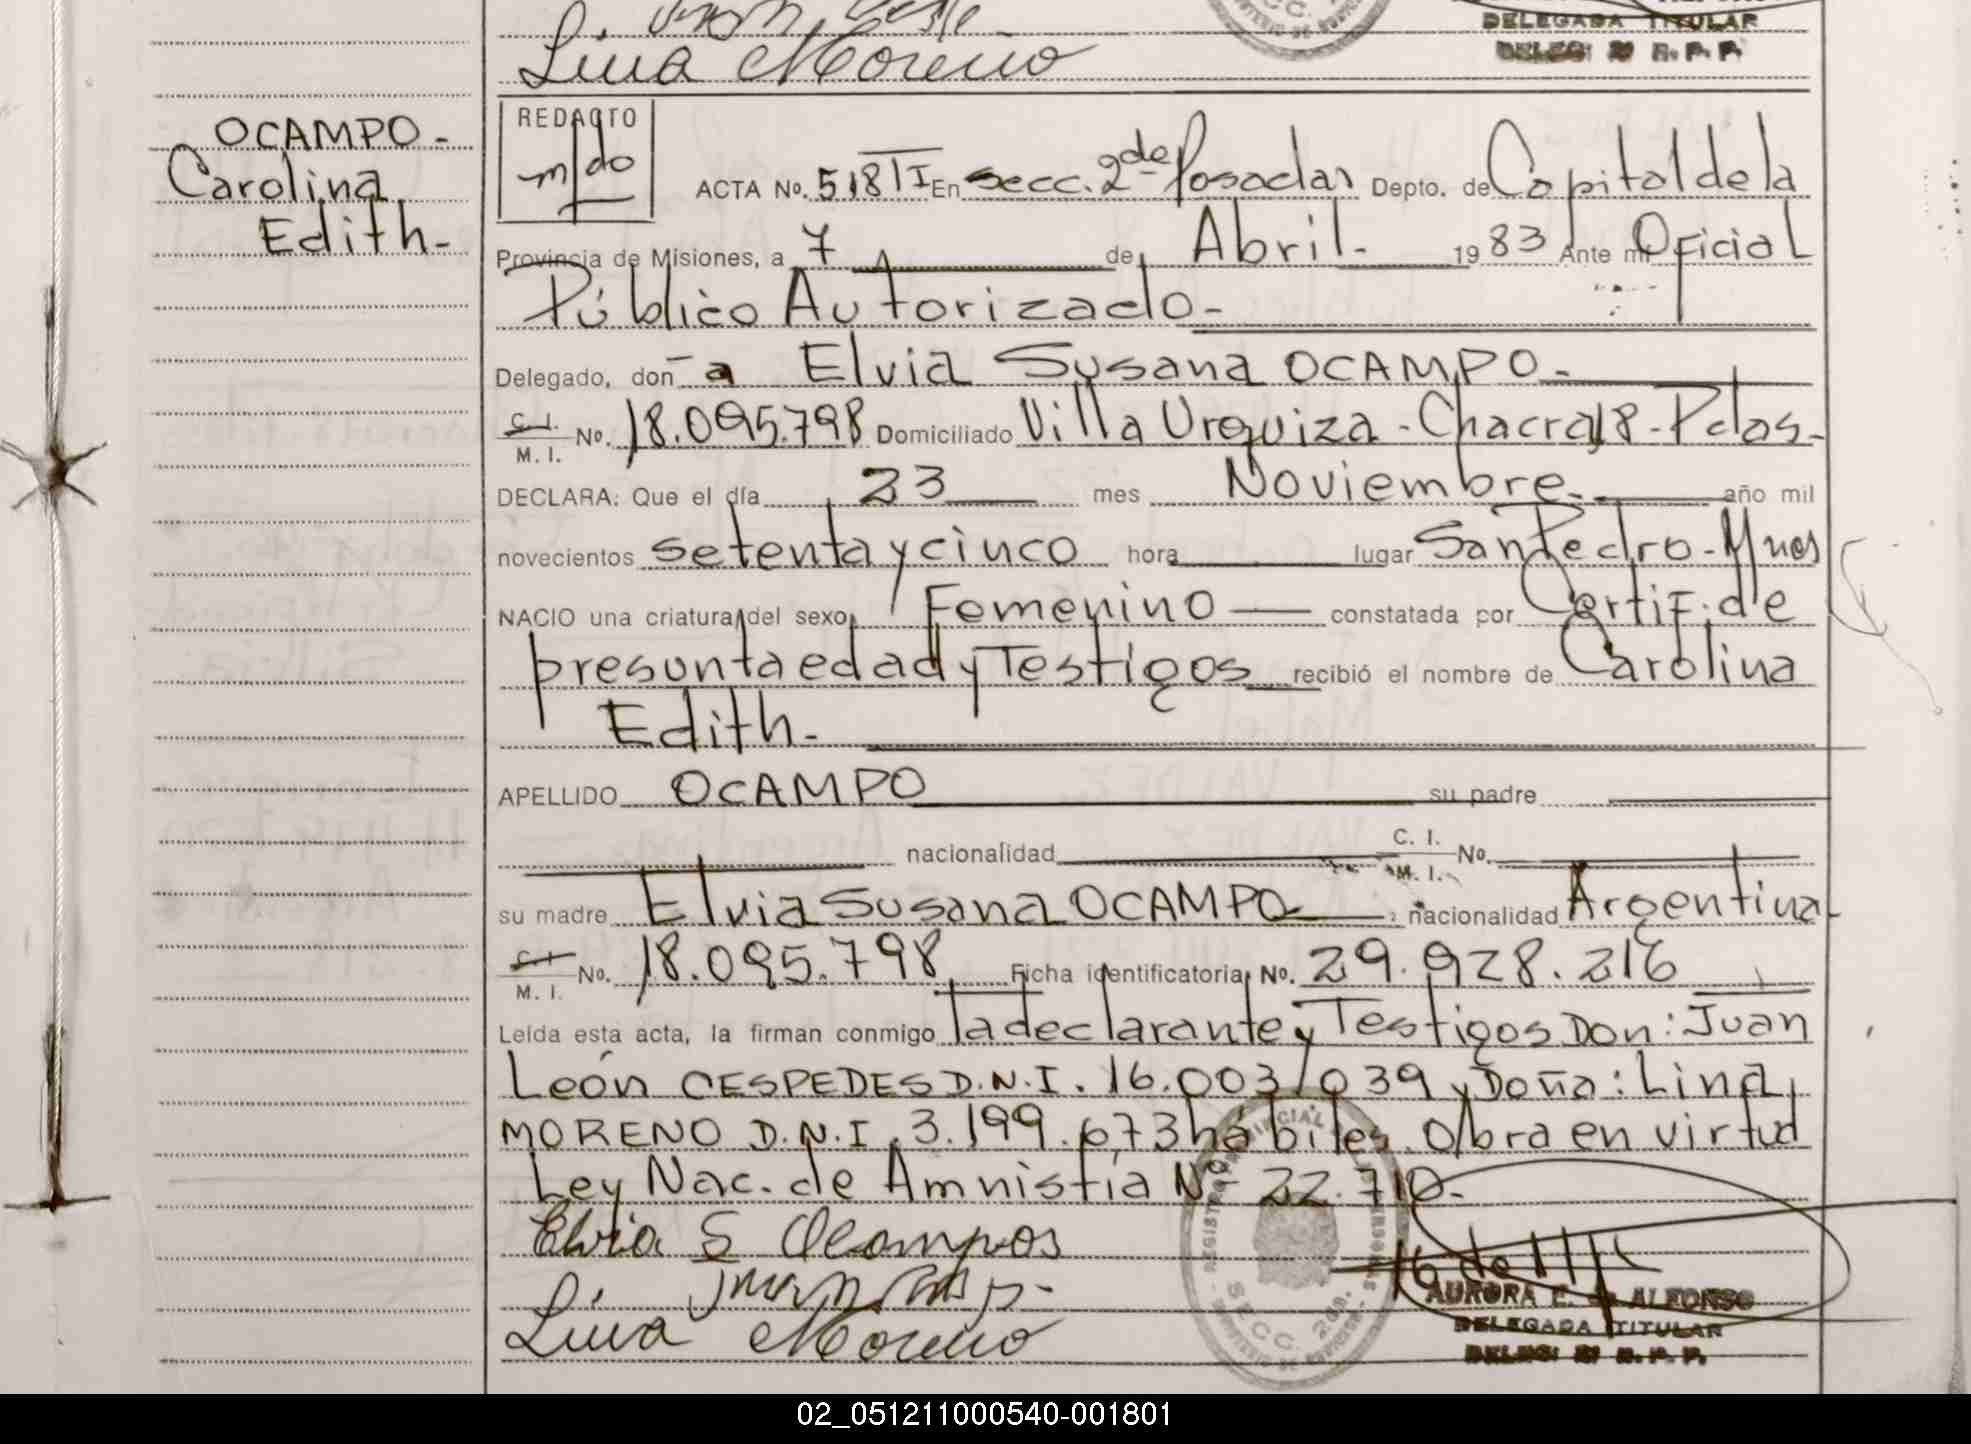 Lina Moreno
DELEGADA TITULAR
DELEG: 2ª R. P. P.
OCAMPO-
Carolina
Edith-
REDACTO
m/do
ACTA No. 518 TI En secc. 2da Posadas Depto. de Capital de la
Provincia de Misiones, a 7 de Abril- 1983 Ante mi Oficial
Público Autorizado-
Delegado, don-a Elvia Susana OCAMPO-
C. I.
M. I. No. 18.095.798 Domiciliado Villa Urquiza - Chacra 18 - Pdas-
DECLARA: Que el día 23 mes Noviembre- año mil
novecientos setenta y cinco hora lugar San Pedro - Mnes
NACIO una criatura del sexo Femenino constatada por Certif. de
presunta edad y Testigos recibió el nombre de Carolina
Edith-
APELLIDO OCAMPO su padre
nacionalidad C. I. M. I. No.
su madre Elvia Susana OCAMPO nacionalidad Argentina
C. I.
M. I. No. 18.095.798 Ficha identificatoria No. 29.928.216
Leída esta acta, la firman conmigo la declarante y Testigos Don: Juan
León CESPEDES D.N.I. 16.003.039 y Doña: Lina
MORENO D.N.I. 3.199.673 hábiles. Obra en virtud
Ley Nac. de Amnistía Nº 22.710-
Elvia S Ocampos
Lina Moreno
SECC. 2da.
AURORA E. de ALFONSO
DELEGADA TITULAR
DELEG: 2ª R. P. P.
02_051211000540-001801